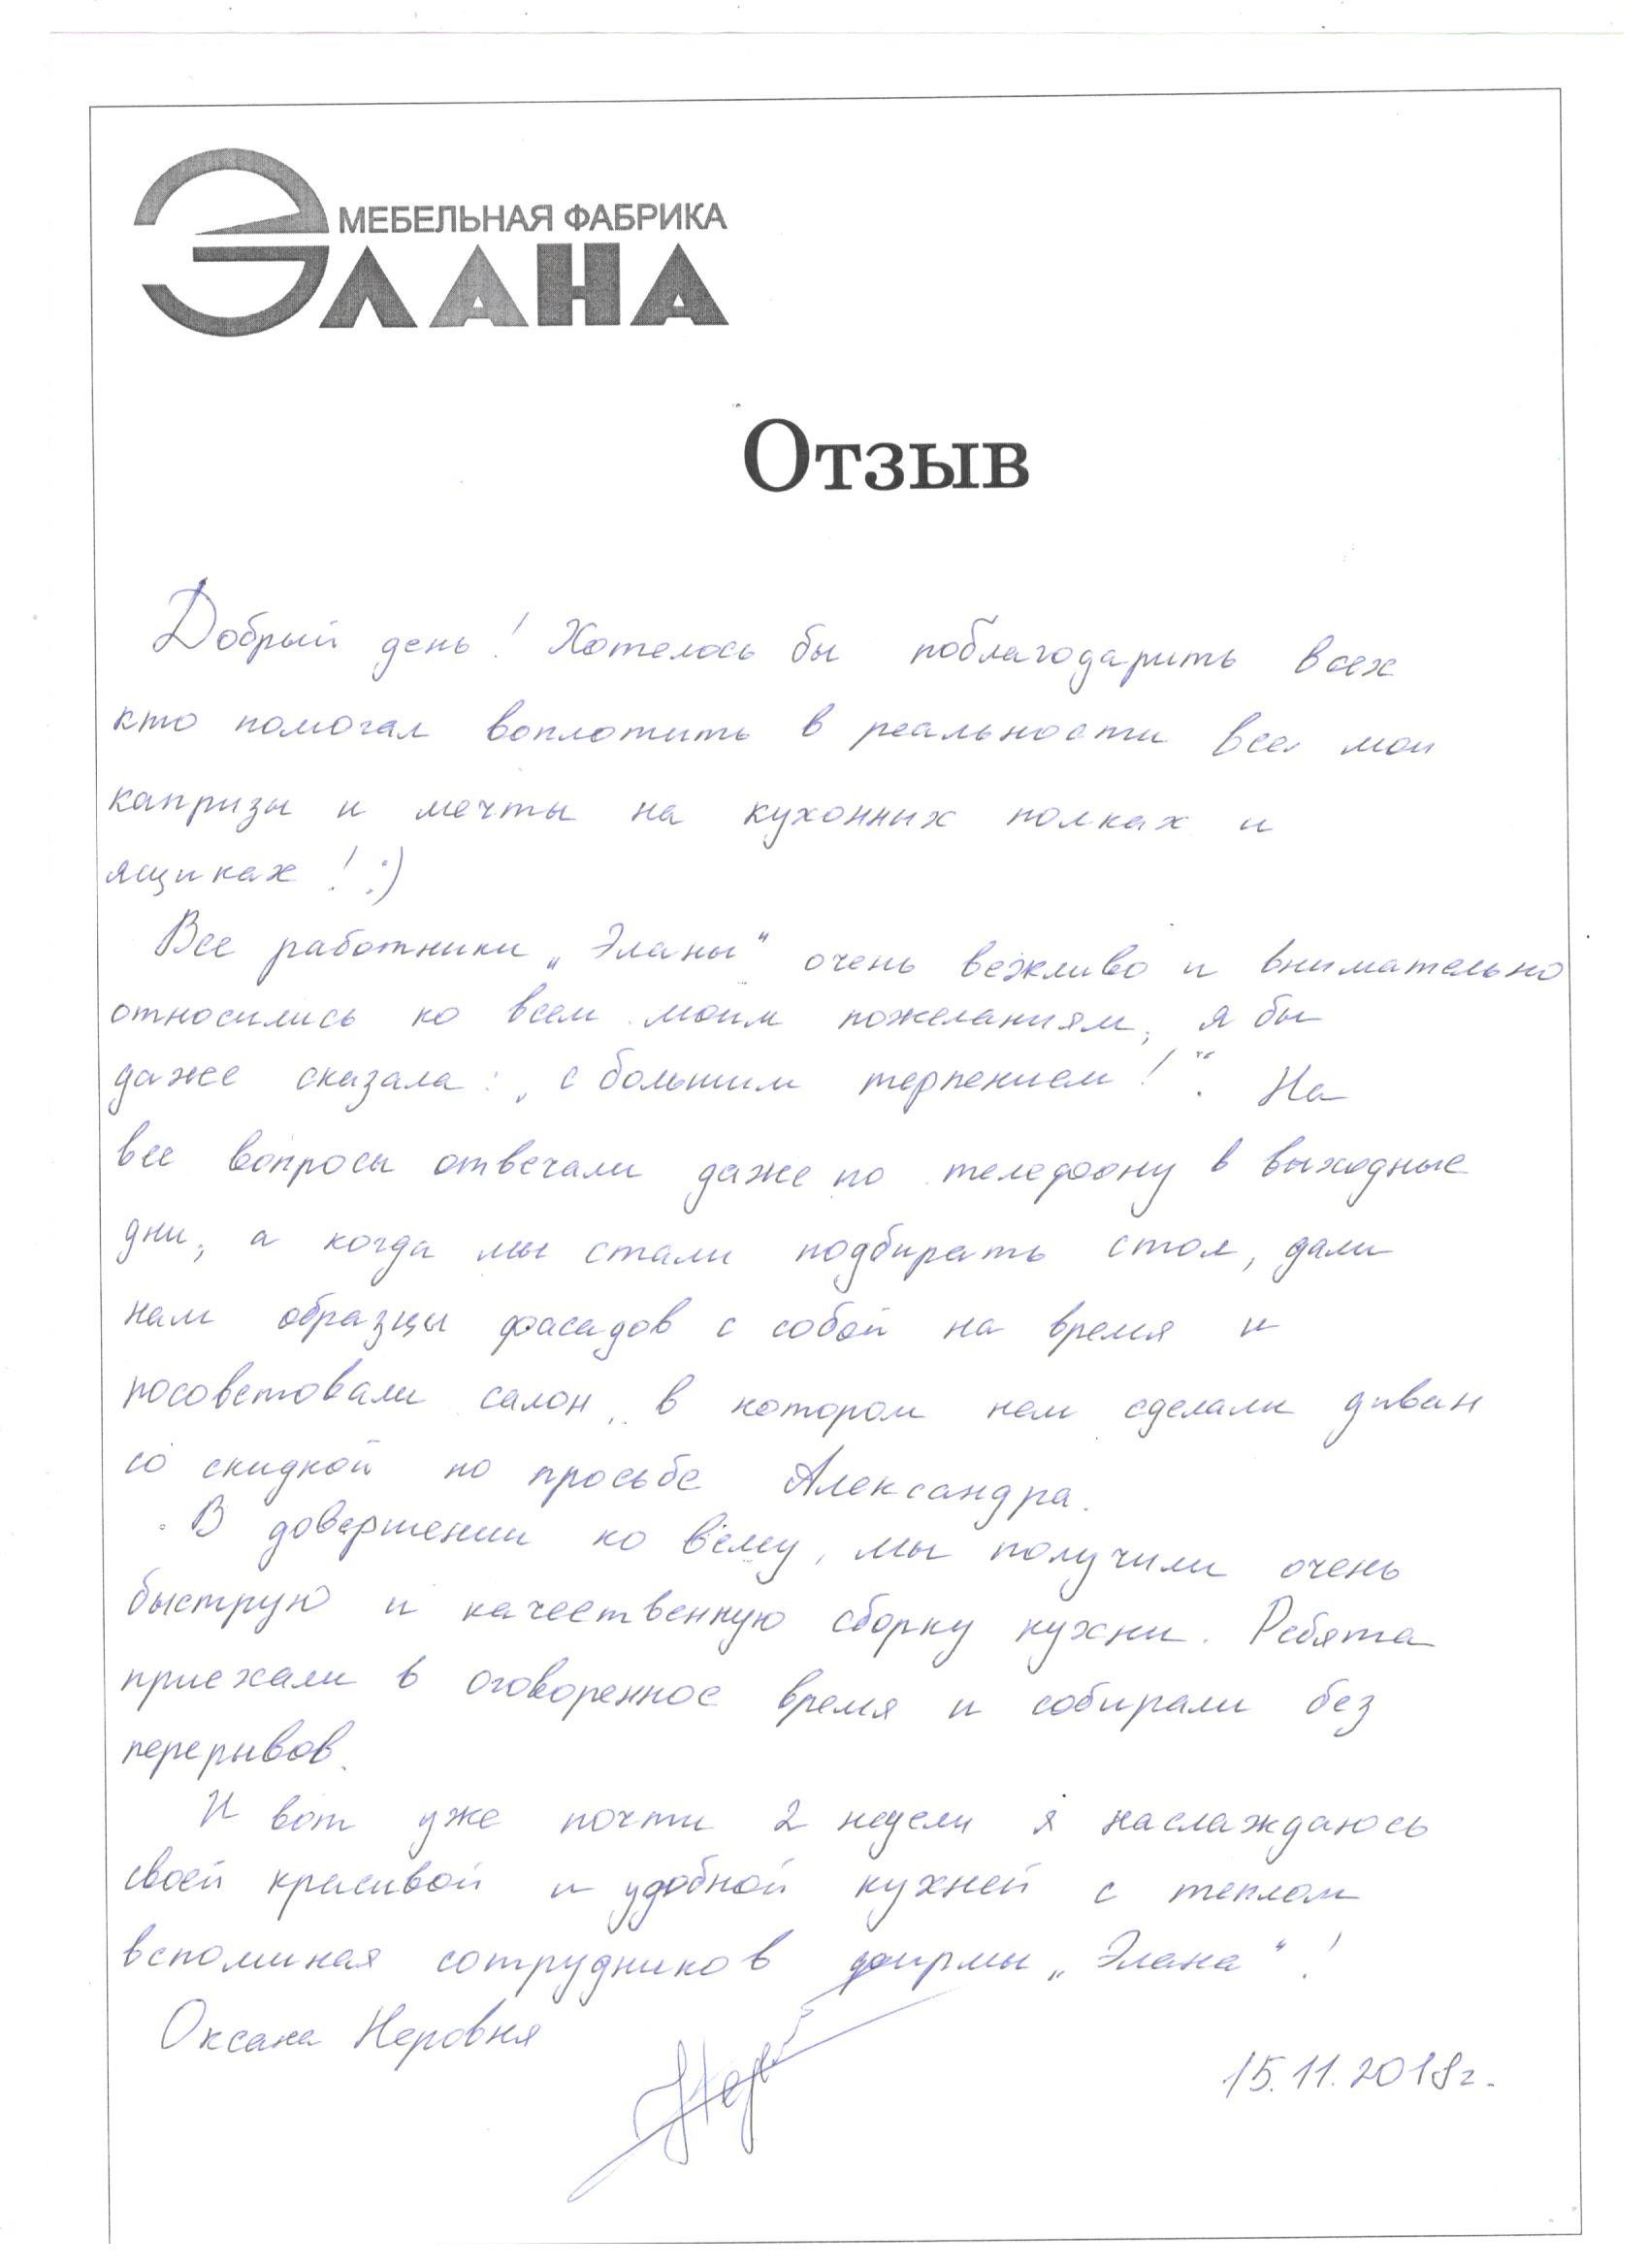 МЕБЕЛЬНАЯ ФАБРИКА
ЭЛАНА
Отзыв
Добрый день! Хотелось бы поблагодарить всех
кто помогал воплотить в реальности все мои
капризы и мечты на кухонных полках и
ящиках! :)
Все работники „Эланы“ очень вежливо и внимательно
относились ко всем моим пожеланиям, я бы
даже сказала: „с большим терпением!“. На
все вопросы отвечали даже по телефону в выходные
дни, а когда мы стали подбирать стол, дали
нам образцы фасадов с собой на время и
посоветовали салон, в котором нам сделали диван
со скидкой по просьбе Александра.
В довершении ко всему, мы получили очень
быструю и качественную сборку кухни. Ребята
приехали в оговоренное время и собирали без
перерывов.
И вот уже почти 2 недели я наслаждаюсь
своей красивой и удобной кухней с теплом
вспоминая сотрудников фирмы „Элана“!
Оксана Неровня
15.11.2018г.